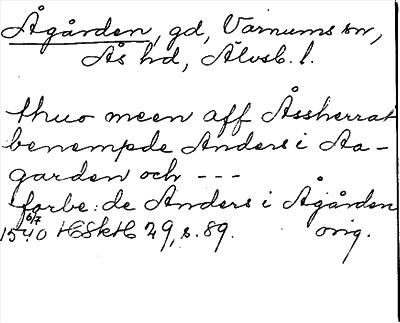 Ågården, gd, Varnums sn,
Ås hd, Älvsb. l.
thuo meen aff Åssherrat
benempde Anders i Aa-
garden och ---
forbe: de Anders i Ågården
1540 6/7 HSkH 29, s. 89. orig.